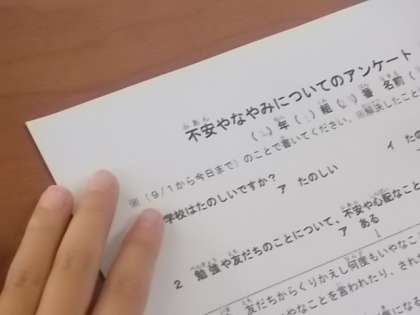 不安やなやみについてのアンケート
( )年( )組( )番 名前
(9/1から今日まで)のことで書いてください。
学校はたのしいですか？ ア たのしい イ た
2 勉強や友だちのことについて、不安や心配なこと
ア ある
友だちからくりかえし何度もいやなこ
なことを言われたり、され